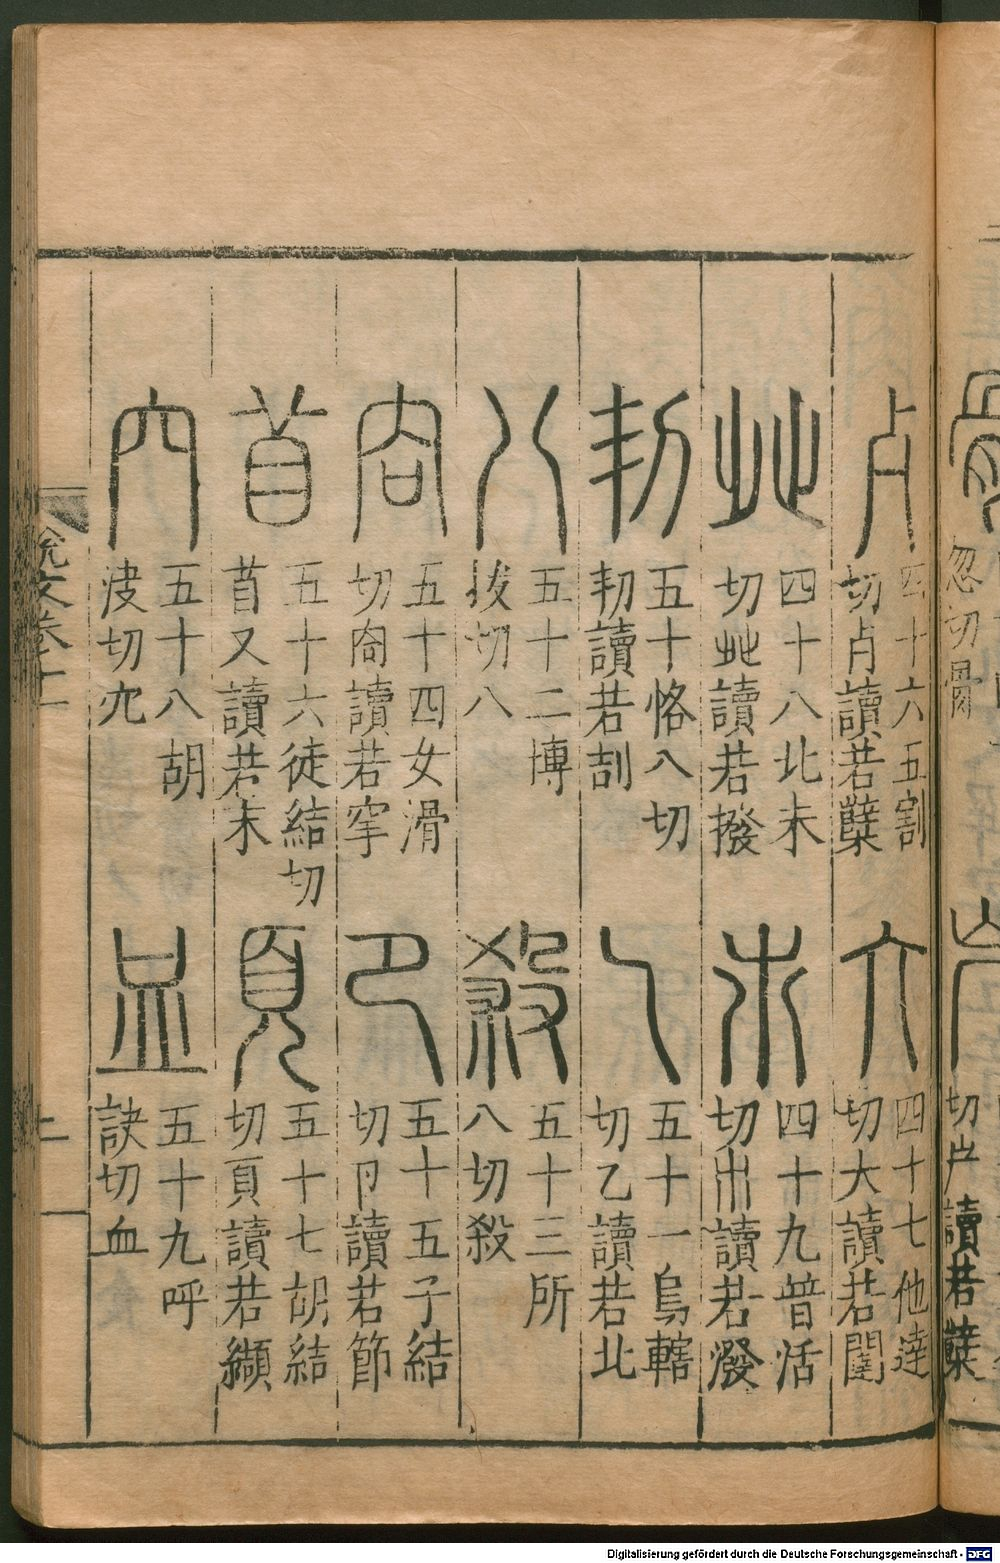 忽切骨
切屵讀若櫱
四十六五割
切歺讀若櫱
四十七他達
切大讀若闥
四十八北未
切癶讀若撥
四十九普活
切𣎵讀若潑
五十恪八切
㓞讀若刮
五十一烏轄
切乙讀若北
五十二博
拔切八
五十三所
八切殺
五十四女滑
切㕯讀若窂
五十五子結
切卩讀若節
五十六徒結切
苜又讀若末
五十七胡結
切頁讀若纈
五十八胡
決切穴
五十九呼
訣切血
説文卷十二
Digitalisierung gefördert durch die Deutsche Forschungsgemeinschaft - DFG